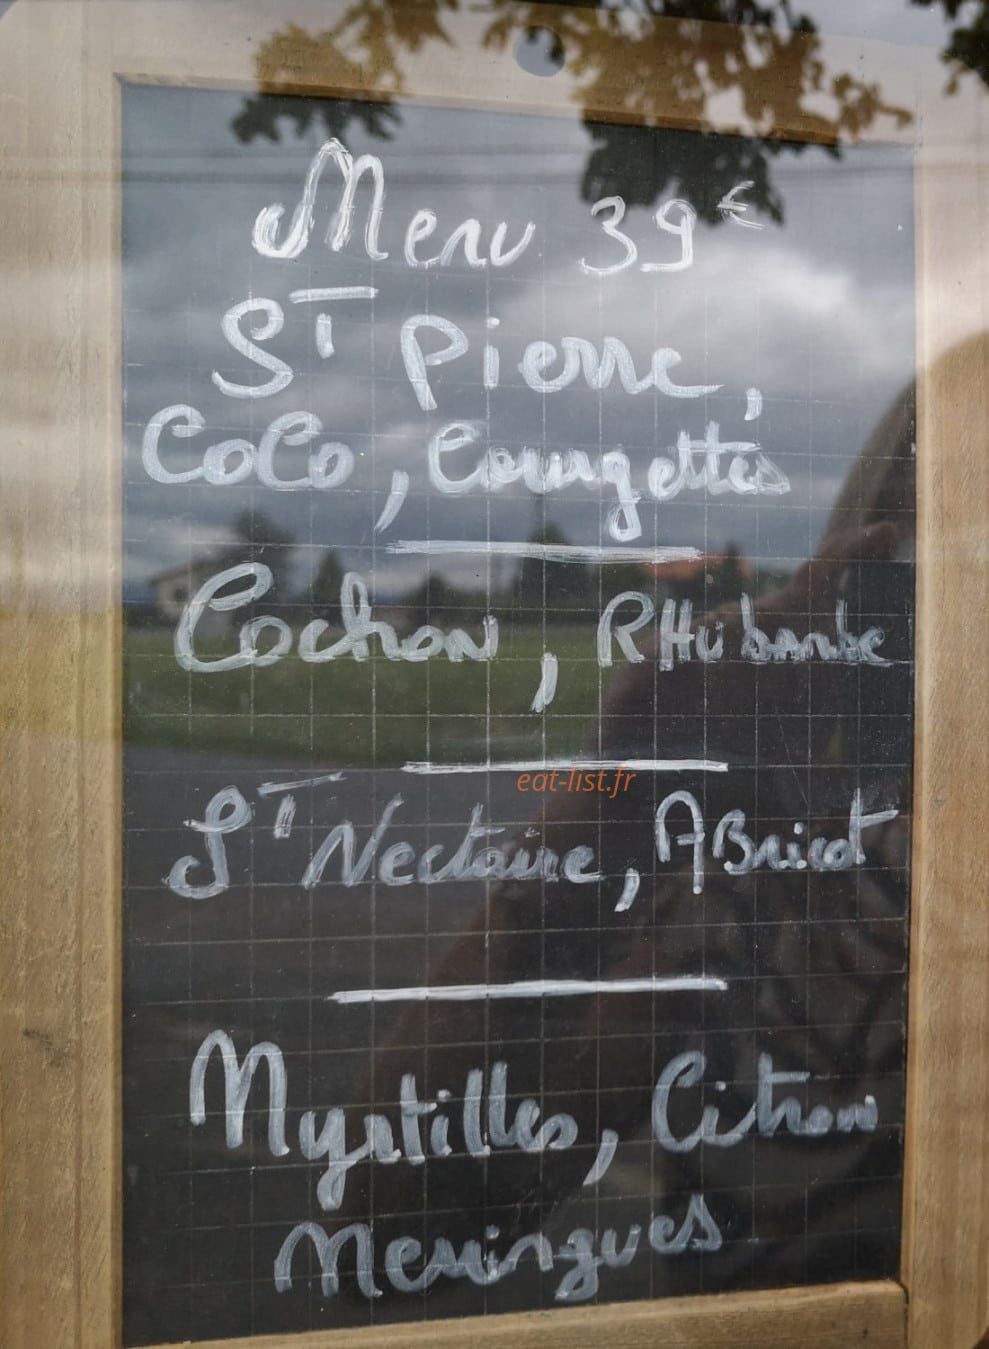 Menu 39€
St Pierre,
CoCo, Courgettes
Cochon, RHubarbe
eat-list.fr
St Nectaire, ABricot
Myrtilles, Citron
Meringues